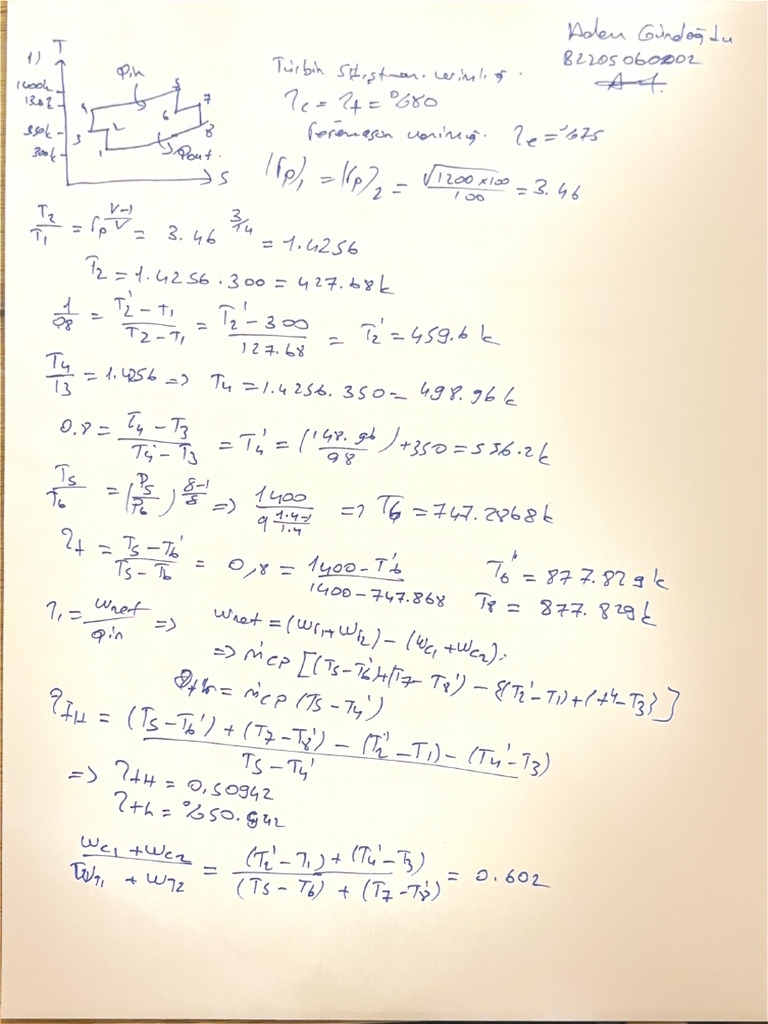 Adem Gündoğdu
82205060002
1)
T
1400k
1302
350k
300k
Qin
5
4
7
6
2
3
8
1
Qout.
S
Türbin
ηc = ηt = %80
verimliğ. ηe = %75
(rp)1 = (rp)2 = √1200×100/100 = 3.46
T2/T1 = rp^γ-1/γ = 3.46^3/14 = 1.4256
T2 = 1.4256 . 300 = 427.68k
1/08 = T2' - T1/T2 - T1 = T2' - 300/127.68 = T2' = 459.6 k
T4/T3 = 1.4256 => T4 = 1.4256. 350 = 498.96k
0.8 = T4 - T3/T4' - T3 = T4' = (148.96/08) + 350 = 536.2k
T5/T6 = (P5/P6)^8-1/8 => 1400/9^1.4-1/1.4 => T6 = 747.2868k
ηt = T5 - T6'/T5 - T6 = 0,8 = 1400 - T6'/1400 - 747.868 T6' = 877.829 k
T8 = 877.829k
η1 = wnet/qin => wnet = (wt1 + wt2) - (wc1 + wc2).
=> ṁcp [(T5 - T6') + (T7 - T8') - {(T2' - T1) + (T4 - T3)}]
= ṁcp (T5 - T4')
ηtH = (T5 - T6') + (T7 - T8') - (T2' - T1) - (T4' - T3)/T5 - T4'
=> ηtH = 0,50942
ηth = %50.942
wc1 + wc2/wT1 + wT2 = (T2' - T1) + (T4' - T3)/(T5 - T6) + (T7 - T8') = 0.602